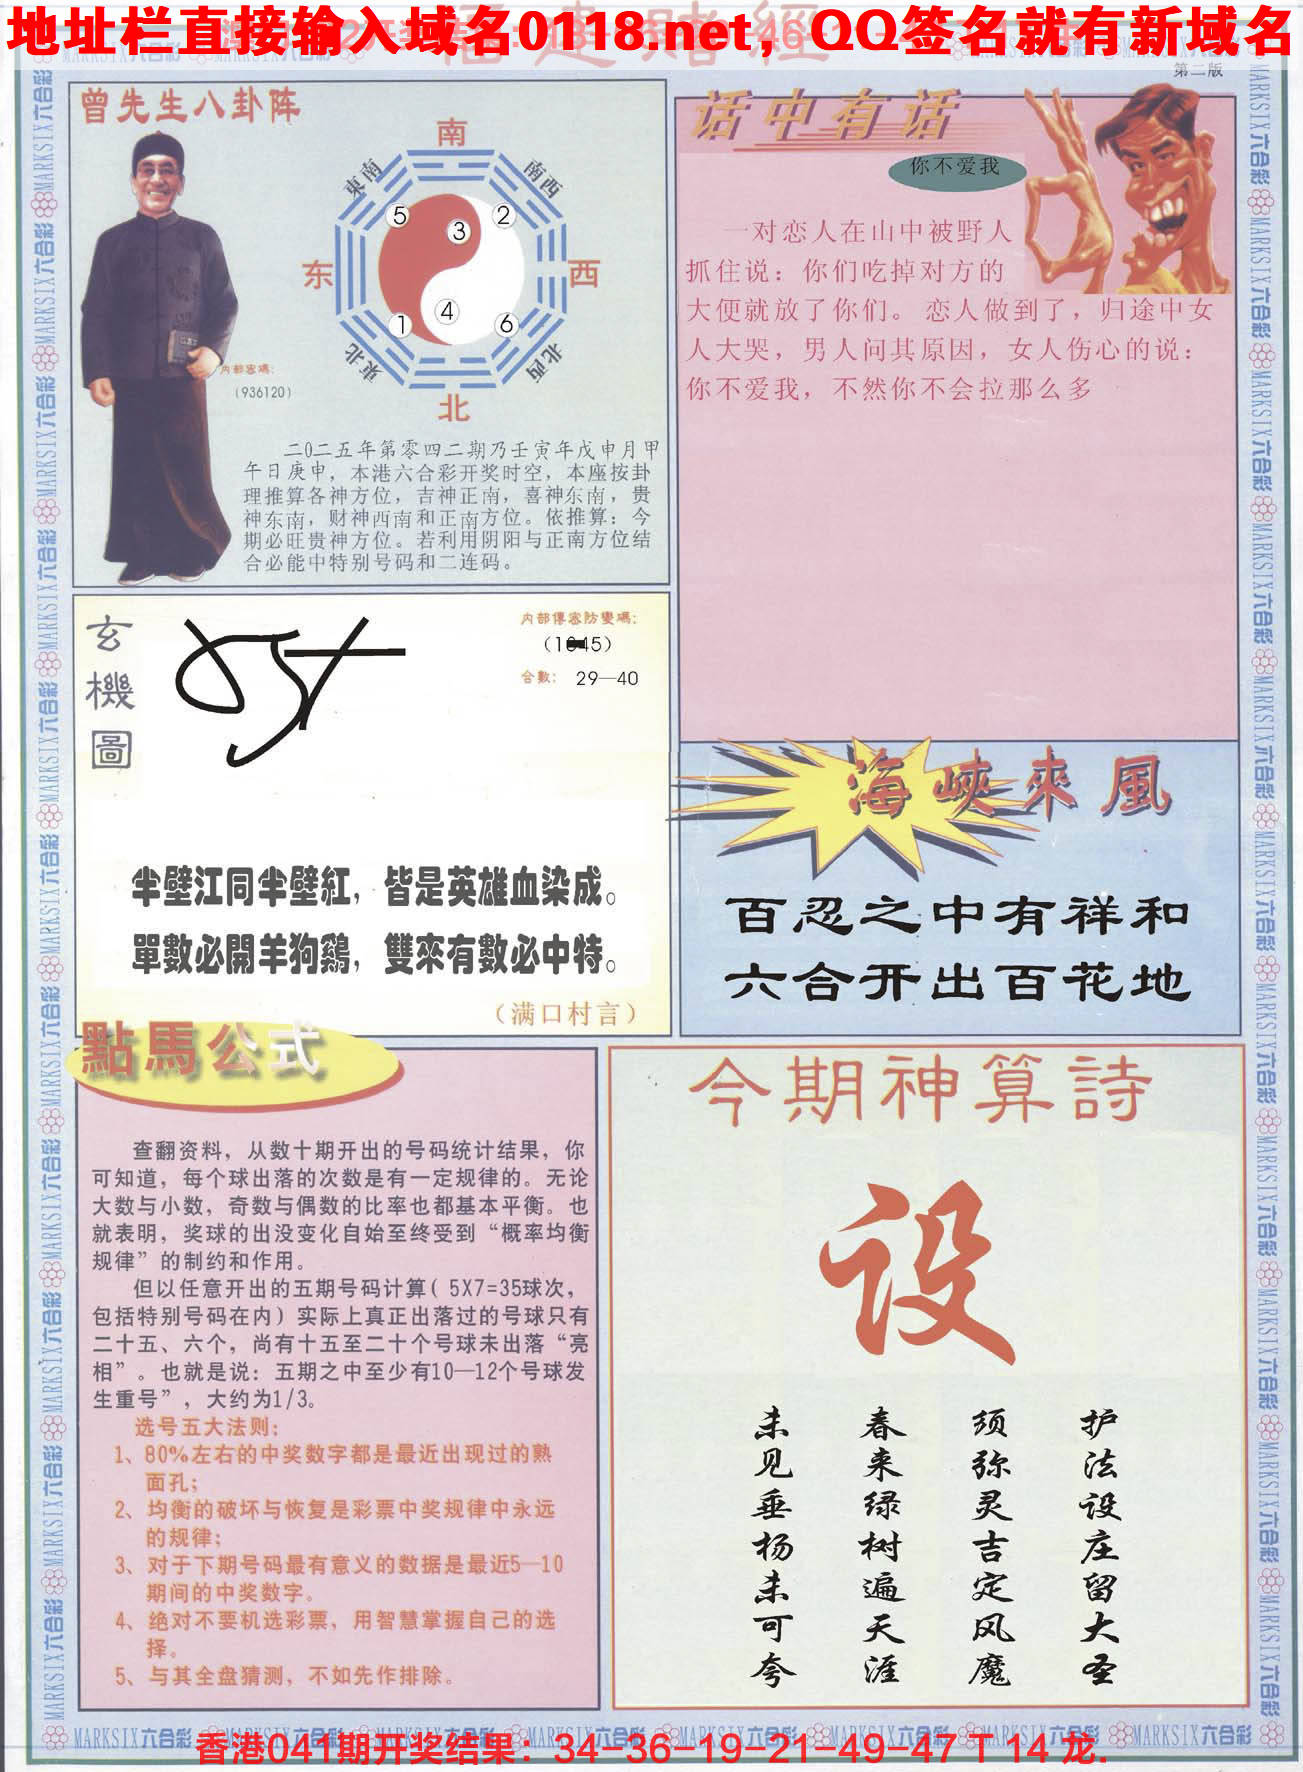 地址栏直接输入域名0118.net，QQ签名就有新域名
福建赌經
第二版
曾先生八卦阵
南
東南
南西
5
3
2
东
西
4
1
6
東北
北西
北
内部密碼：
（936120）
二0二五年第零四二期乃壬寅年戊申月甲
午日庚申，本港六合彩开奖时空，本座按卦
理推算各神方位，吉神正南，喜神东南，贵
神东南，财神西南和正南方位。依推算：今
期必旺贵神方位。若利用阴阳与正南方位结
合必能中特别号码和二连码。
话中有话
你不爱我
一对恋人在山中被野人
抓住说：你们吃掉对方的
大便就放了你们。恋人做到了，归途中女
人大哭，男人问其原因，女人伤心的说：
你不爱我，不然你不会拉那么多
玄機圖
内部傳密防變碼：
合數：29—40
半壁江同半壁紅，皆是英雄血染成。
單數必開羊狗鷄，雙來有數必中特。
（满口村言）
海峽來風
百忍之中有祥和
六合开出百花地
點馬公式
查翻资料，从数十期开出的号码统计结果，你
可知道，每个球出落的次数是有一定规律的。无论
大数与小数，奇数与偶数的比率也都基本平衡。也
就表明，奖球的出没变化自始至终受到“概率均衡
规律”的制约和作用。
但以任意开出的五期号码计算（5X7=35球次，
包括特别号码在内）实际上真正出落过的号球只有
二十五、六个，尚有十五至二十个号球未出落“亮
相”。也就是说：五期之中至少有10—12个号球发
生重号”，大约为1/3。
选号五大法则：
1、80%左右的中奖数字都是最近出现过的熟
面孔；
2、均衡的破坏与恢复是彩票中奖规律中永远
的规律；
3、对于下期号码最有意义的数据是最近5—10
期间的中奖数字。
4、绝对不要机选彩票，用智慧掌握自己的选
择。
5、与其全盘猜测，不如先作排除。
今期神算詩
设
护法设庄留大圣
须弥灵吉定风魔
春来绿树遍天涯
未见垂杨未可夸
MARKSIX六合彩
香港041期开奖结果：34-36-19-21-49-47 T 14 龙.